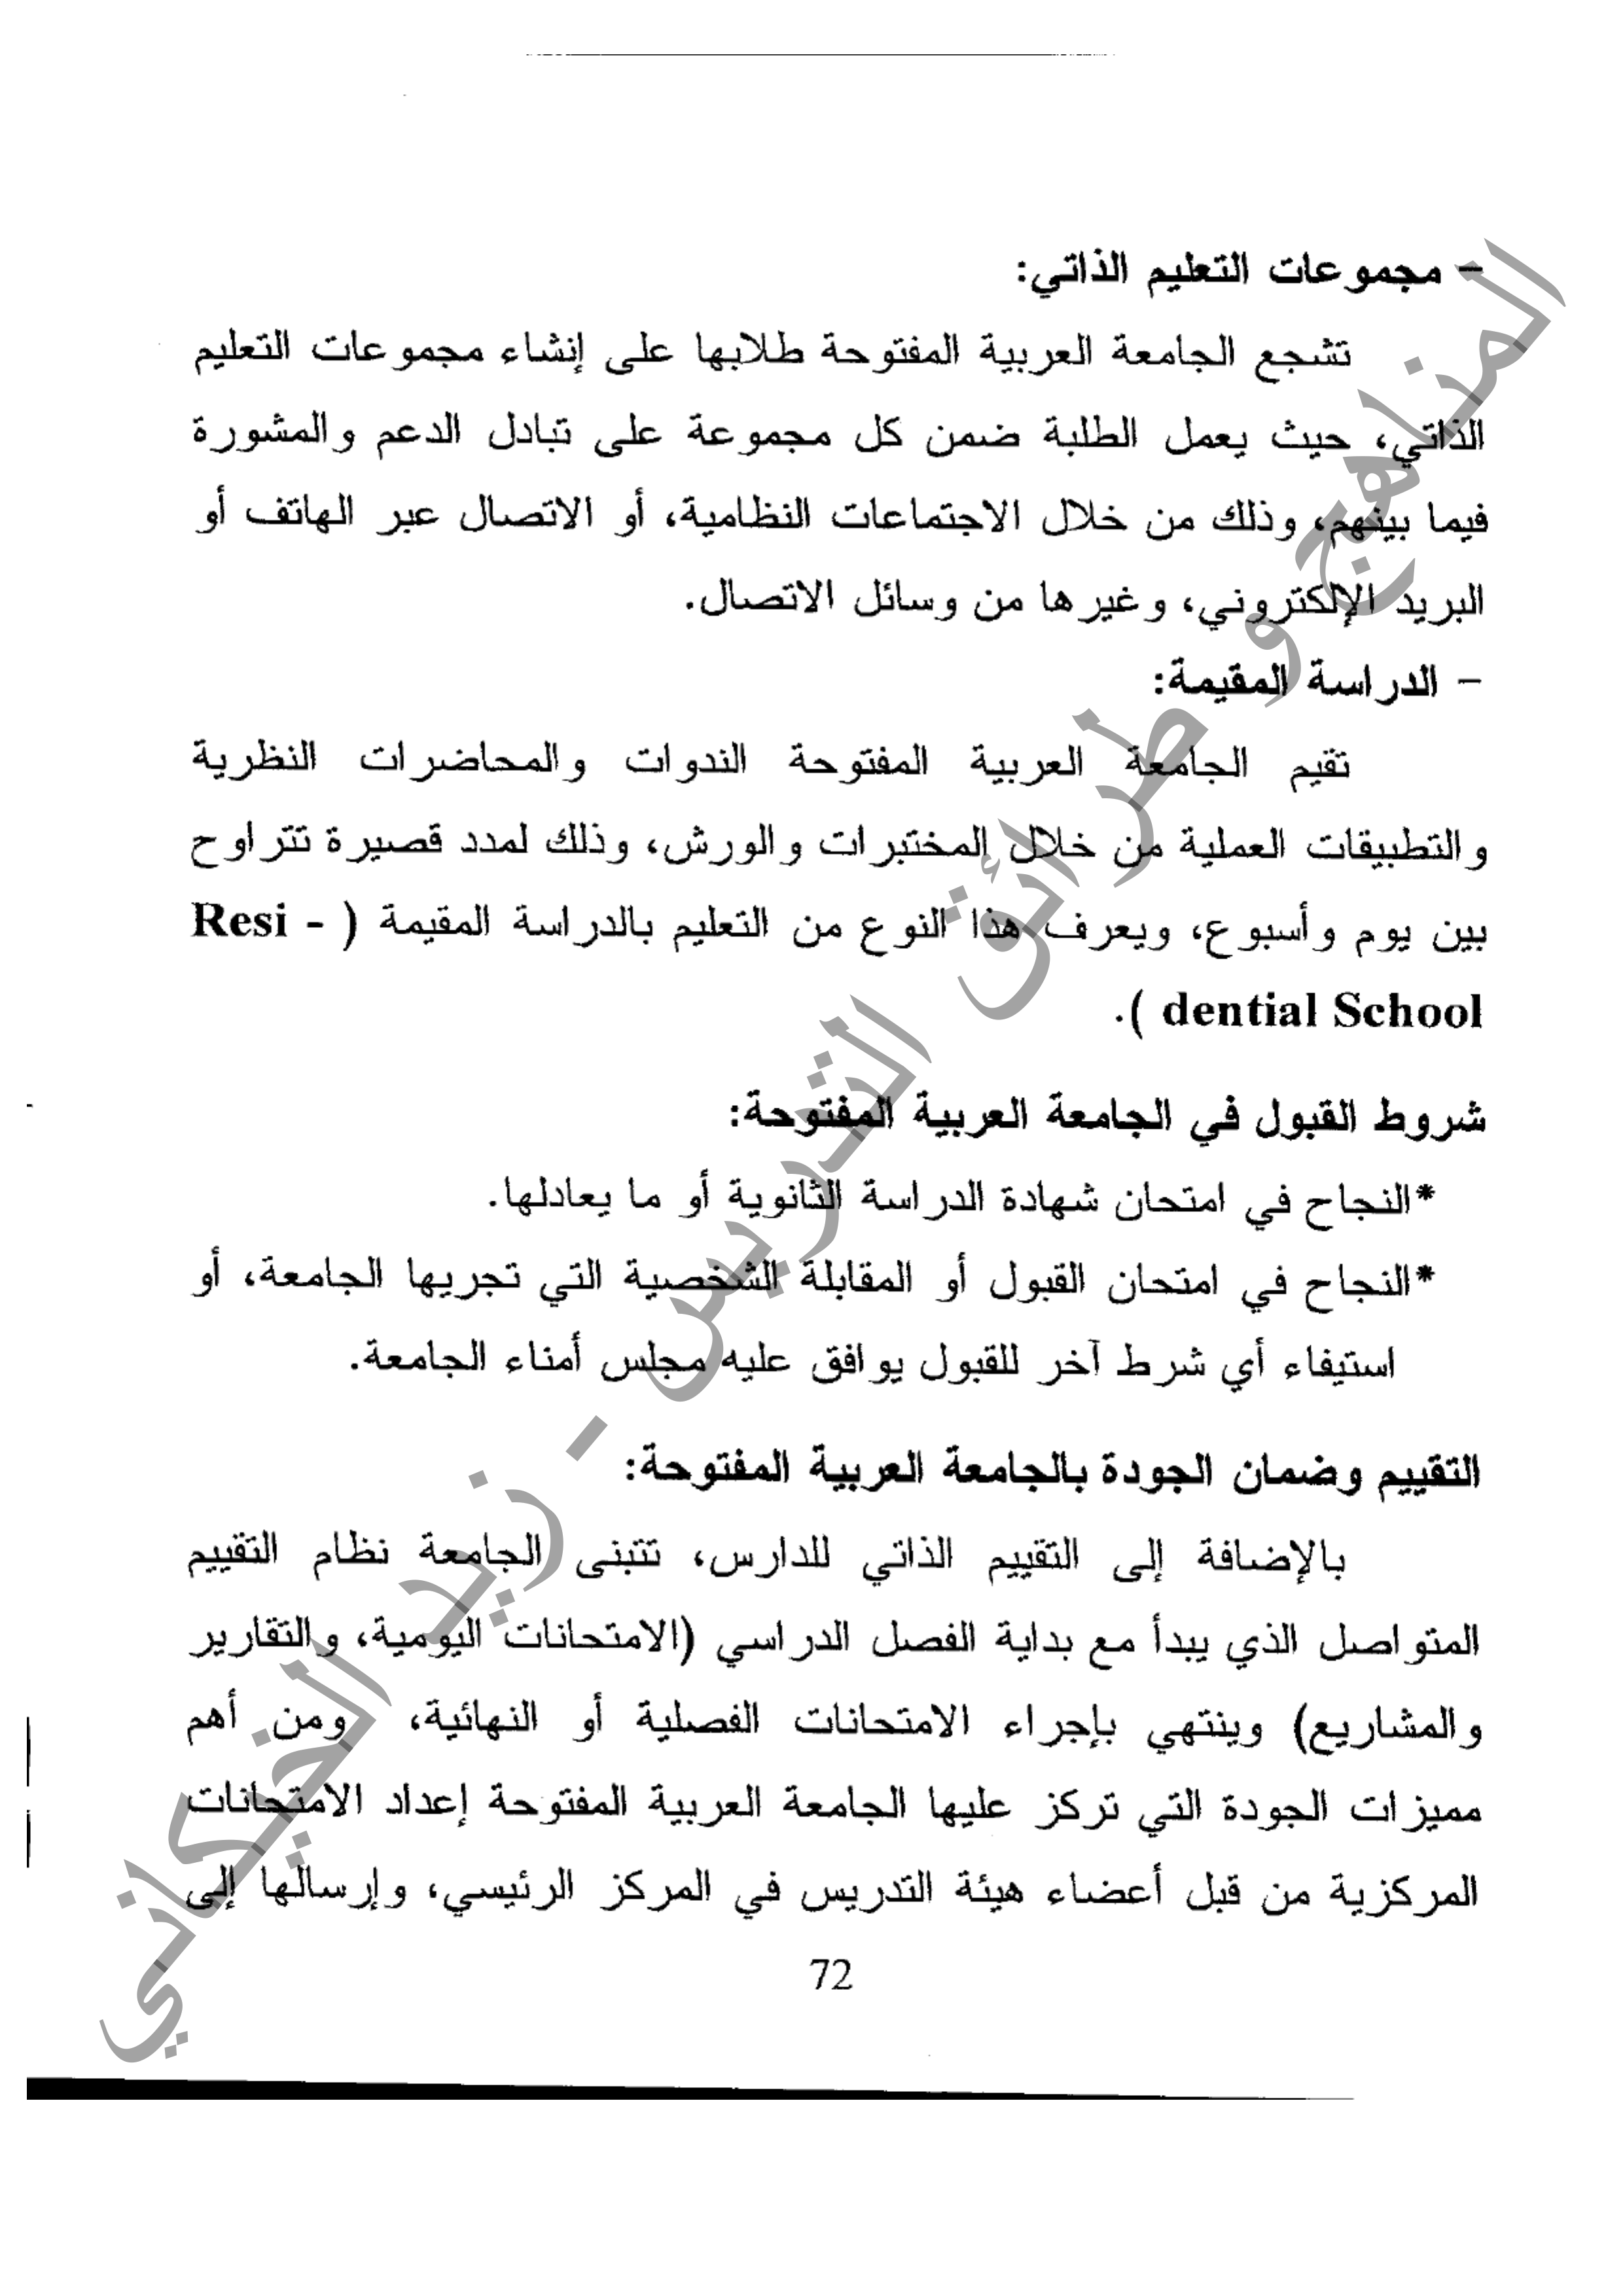 – مجموعات التعليم الذاتي:
تشجع الجامعة العربية المفتوحة طلابها على إنشاء مجموعات التعليم
الذاتي، حيث يعمل الطلبة ضمن كل مجموعة على تبادل الدعم والمشورة
فيما بينهم، وذلك من خلال الاجتماعات النظامية، أو الاتصال عبر الهاتف أو
البريد الإلكتروني، وغيرها من وسائل الاتصال.
– الدراسة المقيمة:
تقيم الجامعة العربية المفتوحة الندوات والمحاضرات النظرية
والتطبيقات العملية من خلال المختبرات والورش، وذلك لمدد قصيرة تتراوح
بين يوم وأسبوع، ويعرف هذا النوع من التعليم بالدراسة المقيمة ( Resi -
dential School ).
شروط القبول في الجامعة العربية المفتوحة:
*النجاح في امتحان شهادة الدراسة الثانوية أو ما يعادلها.
*النجاح في امتحان القبول أو المقابلة الشخصية التي تجريها الجامعة، أو
استيفاء أي شرط آخر للقبول يوافق عليه مجلس أمناء الجامعة.
التقييم وضمان الجودة بالجامعة العربية المفتوحة:
بالإضافة إلى التقييم الذاتي للدارس، تتبنى الجامعة نظام التقييم
المتواصل الذي يبدأ مع بداية الفصل الدراسي (الامتحانات اليومية، والتقارير
والمشاريع) وينتهي بإجراء الامتحانات الفصلية أو النهائية، ومن أهم
مميزات الجودة التي تركز عليها الجامعة العربية المفتوحة إعداد الامتحانات
المركزية من قبل أعضاء هيئة التدريس في المركز الرئيسي، وإرسالها إلى
72
المناهج و طرائق التدريس - زيد الخيكاني